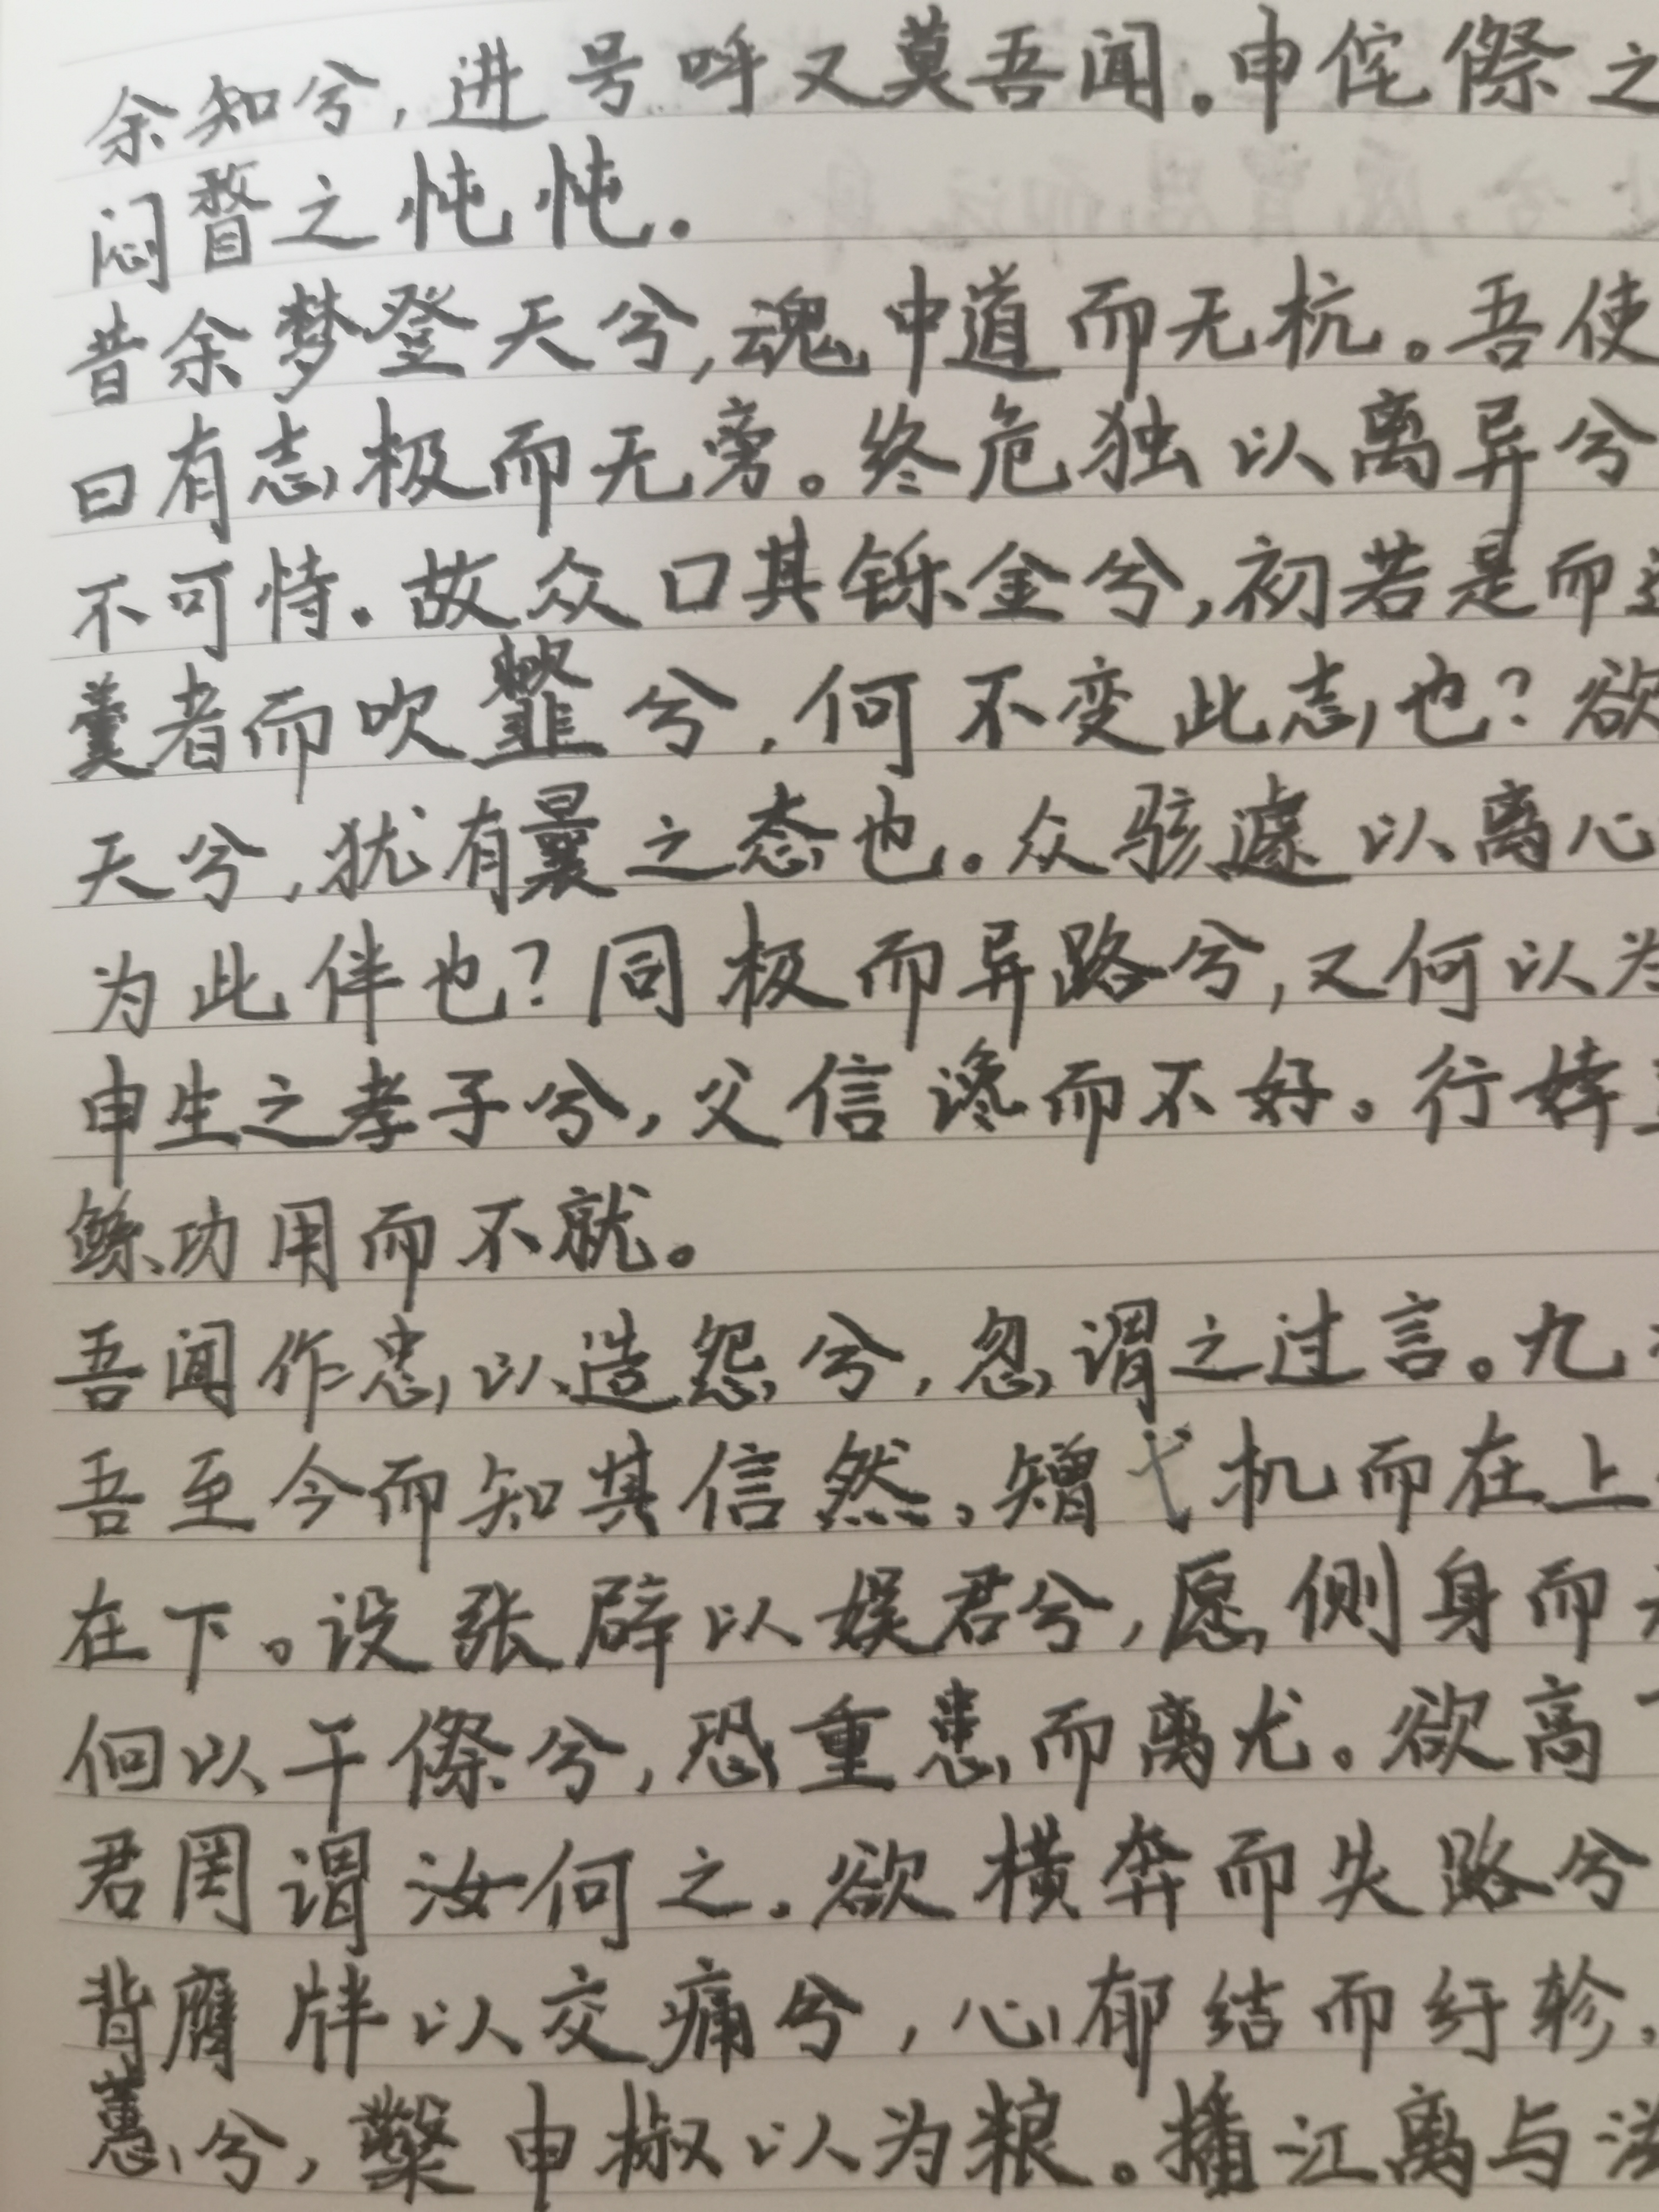 余知兮,进号呼又莫吾闻。申侘傺之
闷瞀之忳忳。
昔余梦登天兮,魂中道而无杭。吾使
曰有志极而无旁。终危独以离异兮
不可恃。故众口其铄金兮,初若是而
羹者而吹韰兮,何不变此志也?欲
天兮,犹有曩之态也。众骇遽以离心
为此伴也?同极而异路兮,又何以为
申生之孝子兮,父信谗而不好。行婞
鲧功用而不就。
吾闻作忠以造怨兮,忽谓之过言。九
吾至今而知其信然。矰弋机而在上
在下。设张辟以娱君兮,愿侧身而
佪以干傺兮,恐重患而离尤。欲高
君罔谓汝何之。欲横奔而失路兮
背膺牉以交痛兮,心郁结而纡轸。
蕙兮,糳申椒以为粮。播江离与滋